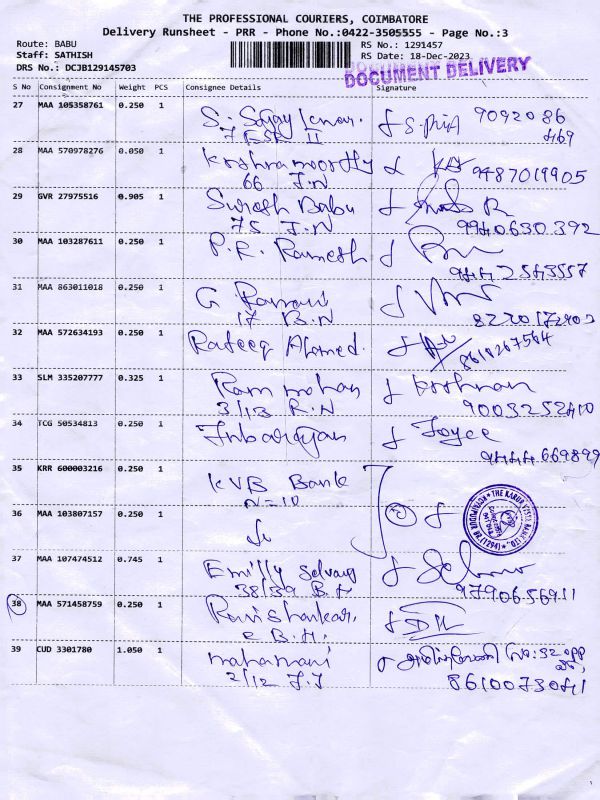 THE PROFESSIONAL COURIERS, COIMBATORE
Delivery Runsheet - PRR - Phone No.:0422-3505555 - Page No.:3
Route: BABU
Staff: SATHISH
DRS No.: DCJB129145703
RS No.: 1291457
RS Date: 18-Dec-2023
DOCUMENT DELIVERY
S No Consignment No Weight PCS Consignee Details Signature
27 MAA 105358761 0.250 1 9092086
II 469
28 MAA 570978276 0.050 1 Krishnamoorthy
66 J.N 9487019905
29 GVR 27975516 0.905 1 Suresh Babu
75 J.N 9940630392
30 MAA 103287611 0.250 1 P.R. Ramesh
9442543557
31 MAA 863011018 0.250 1 G. Ramani
17 B.N
32 MAA 572634193 0.250 1 Rafeeq Ahamed 8618267564
33 SLM 335207777 0.325 1 Ram mohan Krishnan
3/13 R.N 9003252410
34 TCG 50534813 0.250 1 Inbarajan Joyce
9444669899
35 KRR 600003216 0.250 1 KVB Bank
N=10
36 MAA 103807157 0.250 1
37 MAA 107474512 0.745 1 Emilly Selvaraj
38/39 B.H 9790656911
38 MAA 571458759 0.250 1 Ravishankar.
2 B.H.
39 CUD 3301780 1.050 1 mahamani No: 32 opp
2/12 J.J 8610073041